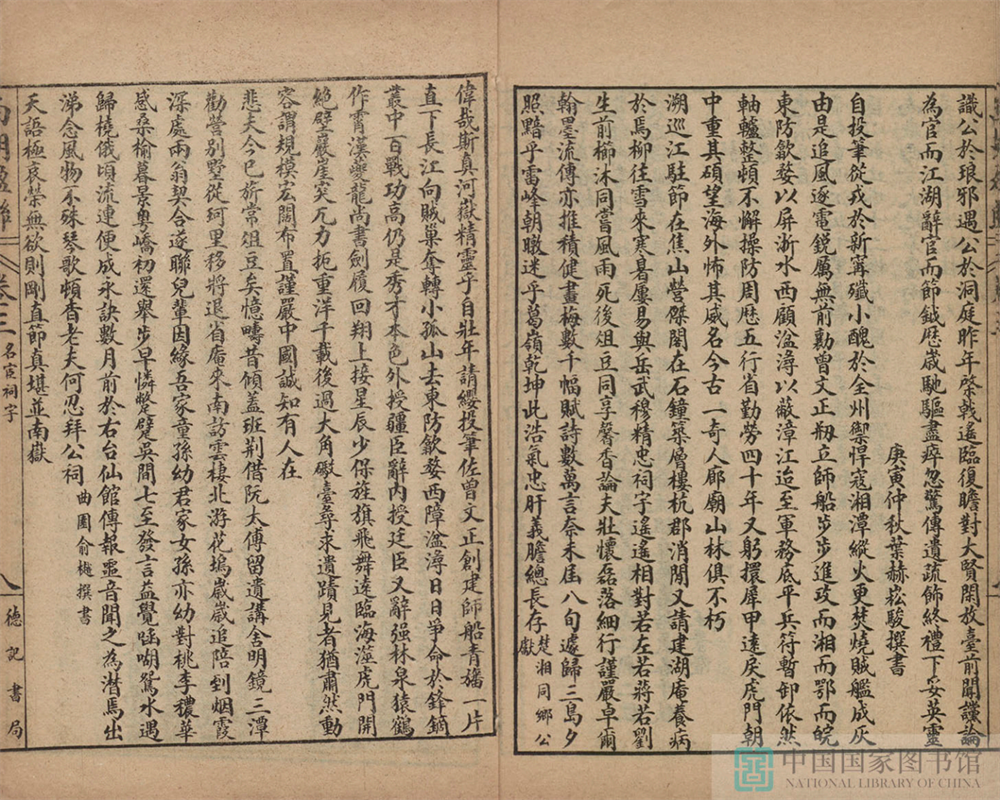 識公於琅邪遇公於洞庭昨年棨戟遙臨復瞻對大賢閑放臺前聞讜論
為官而江湖辭官而節鉞歷歲馳驅盡瘁忽驚傳遺疏飾終禮下妥英靈
庚寅仲秋葉赫崧駿撰書
自投筆從戎於新甯殲小醜於全州禦悍寇湘潭縱火更焚燒賊艦成灰
由是追風逐電銳厲無前勷曾文正刱立師船步步進攻而湘而鄂而皖
東防歙婺以屏浙水西顧湓潯以蔽漳江迨至軍務底平兵符暫卸依然
軸轤整頓不解操防周歷五行省勤勞四十年又躬擐犀甲遠戾虎門朝
中重其碩望海外怖其威名今古一奇人廊廟山林俱不朽
溯巡江駐節在焦山營傑閣在石鐘築層樓杭郡消閒又請建湖庵養病
於焉柳往雪來寒暑屢易與岳武穆精忠祠宇遙遙相對若左若蔣若劉
生前櫛沐同嘗風雨死後俎豆同享馨香論夫壯懷磊落細行謹嚴卓爾
翰墨流傳亦推積健畫梅數千幅賦詩數萬言奈未屆八旬遽歸三島夕
照黯乎雷峰朝暾迷乎葛嶺乾坤此浩氣忠肝義膽總長存
楚湘同鄉公獻
偉哉斯真河嶽精靈乎自壯年請纓投筆佐曾文正創建師船青旛一片
直下長江向賊巢奪轉小孤山去東防歙婺西障湓潯日日爭命於鋒鏑
叢中百戰功高仍是秀才本色外授疆臣辭內授廷臣又辭强林泉猿鶴
作霄漢夔龍尚書劍履回翔上接星辰少保旌旗飛舞遠臨海澨虎門開
絕壁巖崖突兀力扼重洋千載後過大角礮臺尋求遺蹟見者猶肅然動
容謂規模宏闊布置謹嚴中國誠知有人在
悲夫今已旂常俎豆矣憶疇昔傾蓋班荊借阮大傅留遺講舍明鏡三潭
勸營別墅從珂里移將退省庵來南訪雲棲北游花塢歲歲追陪到烟霞
深處兩翁契合遂聯兒輩因緣吾家童孫幼君家女孫亦幼對桃李穠華
感桑榆暮景粵嶠初還舉步早憐蹩躄吳閶七至發言益覺㗀嗍鴛水遇
歸橈俄頃流連便成永訣數月前於右台仙館傳報噩音聞之為潸焉出
涕念風物不殊琴歌頓杳老夫何忍拜公祠
曲園俞樾撰書
天語極哀榮無欲則剛直節真堪並南嶽
卷三
名宦祠宇
八
德記書局
中国国家图书馆
NATIONAL LIBRARY OF CHINA